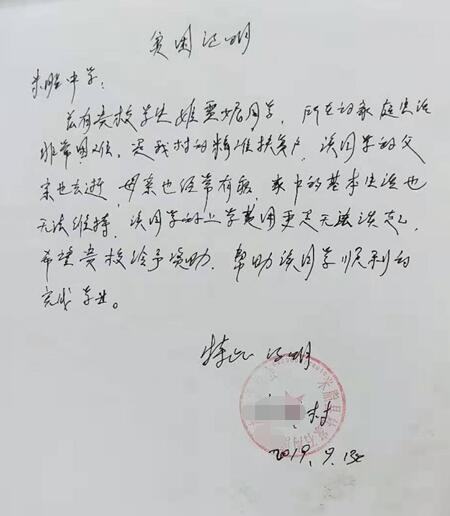 贫困证明
米脂中学：
兹有贵校学生姬同学，所在的家庭生活
非常困难，是我村的精准扶贫户，该同学的父
亲也去逝，母亲也经常有病，家中的基本生活也
无法维持，该同学的上学费用更是无法谈起，
希望贵校给予资助，帮助该同学顺利的
完成学业。
特此证明
村
2019.9.13